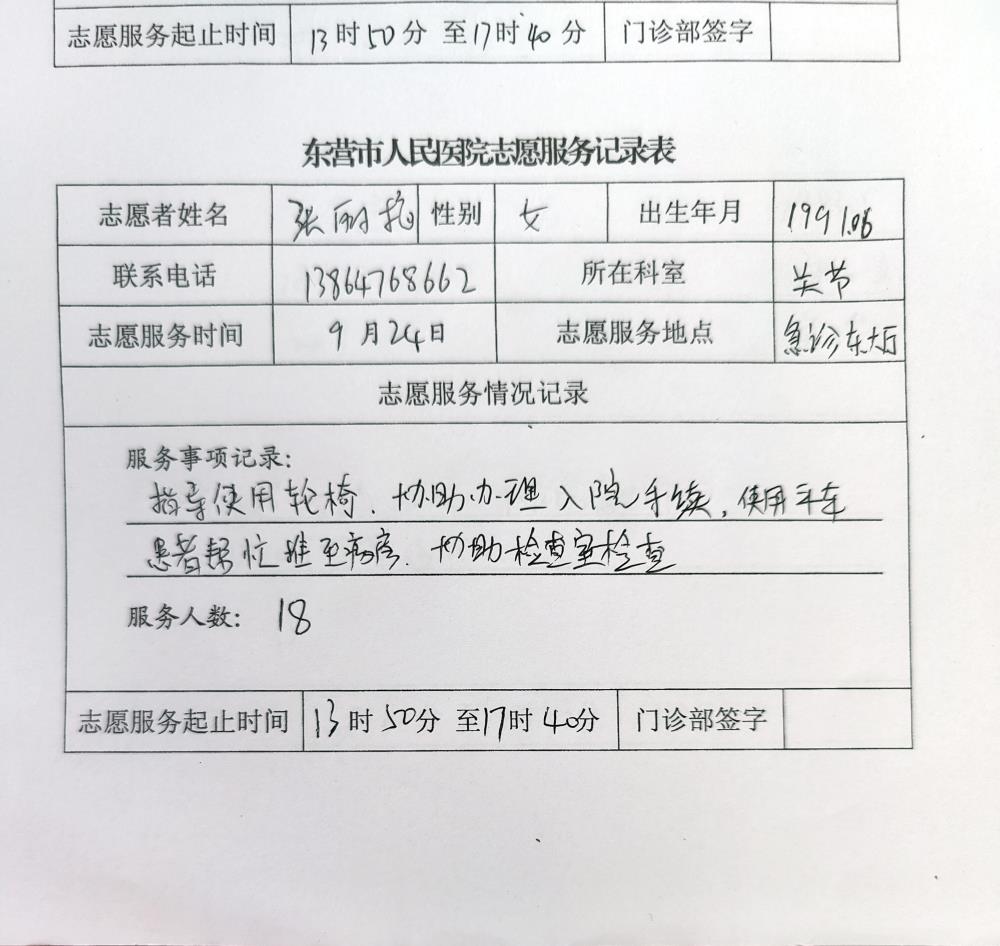 志愿服务起止时间 13时50分 至17时40分 门诊部签字
东营市人民医院志愿服务记录表
志愿者姓名 张丽 性别 女 出生年月 1991.06
联系电话 13864768662 所在科室 关节
志愿服务时间 9月24日 志愿服务地点 急诊东大厅
志愿服务情况记录
服务事项记录:
指导使用轮椅、协助办理入院手续,使用平车
患者帮忙推至病房、协助检查室检查
服务人数: 18
志愿服务起止时间 13时50分 至17时40分 门诊部签字